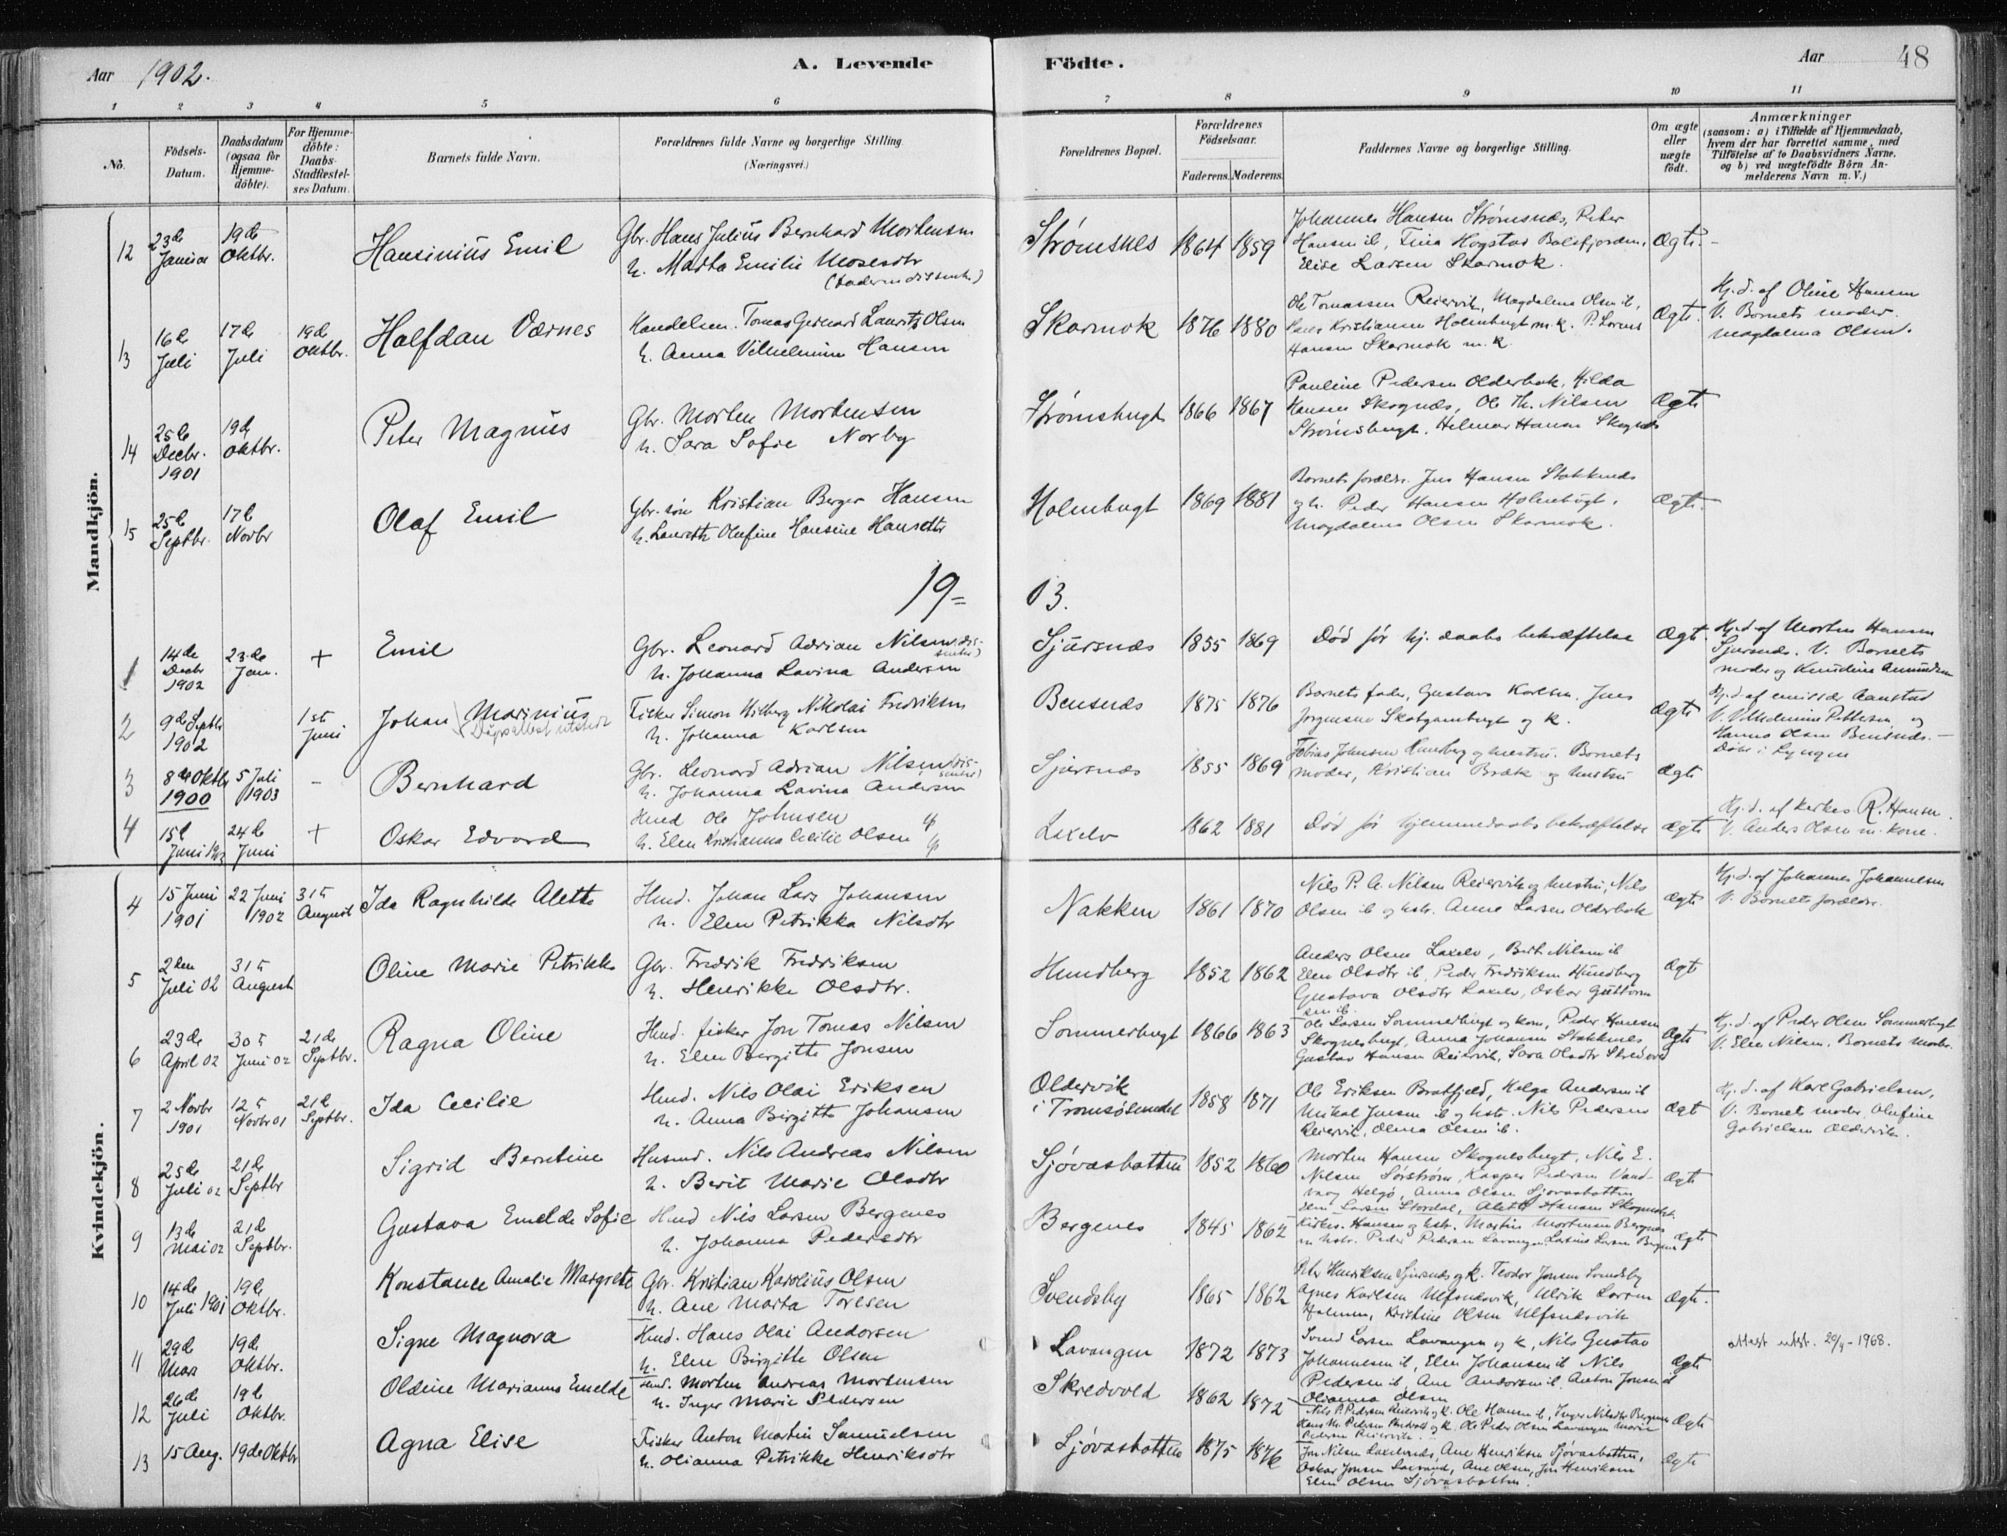 Aar 1902. A. Levende Födte. Aar 48
1 2 3 4 5 6 7 8 9 10 11
No.
Födsels-Datum.
Daabsdatum (ogsaa for Hjemme-döbte).
For Hjemme-döbte: Daabs-Stadfæstel-ses Datum.
Barnets fulde Navn.
Forældrenes fulde Navne og borgerlige Stilling (Næringsvei.)
Forældrenes Bopæl.
Forældrenes Födselsaar.
Faderens. Moderens.
Faddernes Navne og borgerlige Stilling.
Om ægte eller uægte födt.
Anmærkninger
(saasom: a) i Tilfælde af Hjemmedaab, hvem der har forrettet samme, med Tilföielse af to Daabsvidners Navne, og b) ved uægtefödte Börn An-melderens Navn m. V.)
Mandkjön.
12 23de Januar 19de Oktbr. Hansinius Emil Gbr. Hans Julius Bernhard Mortensen Strømsnes 1864 1859 Johannes Hansen Strømsnæs, Peder Ægte.
h. Marta Emilie Mosesdtr Hansen ib, Tina Hogstad Balsfjorden,
Elise Larsen Skarmok.
13 16de Juli 17de Juli 19de Oktbr. Halfdan Værnes Handelsm. Tomas Gerhard Lauritz Olsen Skarmok 1876 1880 Ole Tomassen Reiervik, Magdalena Olsen ib, Ægte. Hj. d. af Oline Hansen
h. Anna Vilhelmine Hansen Kristiansen Holmbugt m. k. V. Barnets moder
Hansen Skarmok m. k. Magdalena Olsen.
14 25de Decbr. 1901 19de Oktbr. Peter Magnus Gbr. Morten Mortensen Strømsbugt 1866 1867 Pauline Pedersen Olderbak, Hilda Ægte
h. Sara Sofie Norby Hansen Skognæs, Ole Th. Nilsen
Strømsbugt. Hilmar Hansen Skognæs
15 25de Septbr. 17de Novbr Olaf Emil Gbr. søn Kristian Berger Hansen Holmbugt 1869 1881 Barnets forældr. Jens Hansen Stakknæs Ægte.
h. Olufine Hansine Hansdtr og h. Peder Hansen Holmbugt,
Magdalena Olsen Skarmok.
19= 03.
1 14de Decbr 1902 23de Jan. + Emil Gbr. Leonard Adrian Nilsen (dissenter) Sjursnæs 1855 1869 Død før hj. daabs bekræftelse Ægte Hj. d. af Morten Hansen
h. Johanna Lavina Andersen Sjursnæs. V. Barnets
moder og Knudine Amundsen
2 9de Septbr 1902 1ste Juni Johan Marinius Fisker Simon Hilberg Nikolai Fredriksen Bensnæs 1875 1876 Barnets fader, Gustava Karlsen, Jens Ægte
h. Johanna Karlsen Jørgensen Skotgambugt og k. V. Vilhelmine Pettersen og
Hanna Olsen Bensnæs.
Døbt i Lyngen
3 8de Oktbr 1900 5 Juli 1903 - Bernhard Gbr. Leonard Adrian Nilsen (dissenter) Sjursnæs 1855 1869 Tobias Johnsen Hundberg og hustru. Barnets Ægte
h. Johanna Lavina Andersen moder, Kristian Bræk og hustru
4 15de Juni 1903 24de Juni + Oskar Edvard Hmd Ole Johnsen Lakselv 1862 1881 Død før hjemmedaabs bekræftelse Ægte Hj. d. af kirkes. R. Hansen.
h. Elen Kristianna Cecilie Olsen V. Anders Olsen m. kone.
Kvindekjön.
4 15 Juni 1901 22 Juni 1902 31te August Ida Ragnhilde Alette Hmd. Johan Lars Johansen Nakken 1861 1870 Nils P. A. Nilsen Reiervik og hustru, Nils Ægte Hj. d. af Johannes Johannesen
h. Elen Petrikka Nilsdtr Olsen ib og hstr. Anne Larsen Olderbak V. Barnets forældre.
5 2den Juli 02 31te August Oline Marie Petrikke Gbr. Fredrik Fredriksen Hundberg 1852 1862 Anders Olsen Lakselv, Berit Nilsen ib Ægte
h. Henrikke Olsdtr. Elen Olsdtr ib, Peder Fredriksen Hundberg
Gustava Olsdtr Lakselv, Oskar Guttorm
sen ib.
6 23de April 02 30te Juni 02 21de Septbr. Ragna Oline Hmd. fisker Jon Tomas Nilsen Sommerbugt 1866 1863 Ole Larsen Sommerbugt og kone, Peder Hansen Ægte Hj. d. af Peder Olsen Sommerbugt
h. Elen Bergitte Jonsen Skognesbugt, Anna Johansen Stakknæs V. Elen Nilsen. Barnets moder.
Gustav Hansen Reiervik, Sara Olsdtr Skredvold
7 2 Novbr 1901 12te Novbr 01 21de Septbr. Ida Cecilie Hmd. Nils Olai Eriksen Oldervik i Tromsøsundet 1858 1871 Ole Eriksen Bratfjeld, Helga Andersen ib Ægte Hj. d. af Karl Gabrielsen,
h. Anna Birgitte Johansen Mikal Jensen ib og hstr. Nils Pedersen V. Barnets moder, Olufine
Reiervik, Olena Olsen ib. Gabrielsen Oldervik.
8 25de Juli 02 21de Septbr Sigrid Berntine Husmd. Nils Andreas Nilsen Sjøvasbotten 1852 1860 Morten Hansen Skognesbugt, Nils E. Ægte
h. Berit Marie Olsdtr Nilsen Sørstrøm, Kasper Pedersen Vand-
vaag Helgø, Anna Olsen Sjøvasbotten
Larsen Stordal, Alette Hansen
9 13de Mai 02 21de Septbr. Gustava Emelde Sofie Hmd Nils Larsen Bergenes Bergenes 1845 1862 Kirkes. Hansen og hstr. Martin Mortensen Bergnæs Ægte
h. Johanna Pedersdtr m hstr. Peder Pedersen Lavangen
10 14de Juli 1901 19de Oktbr. Konstance Amalie Margrete Gbr. Kristian Karolius Olsen Svendsby 1865 1862 Peter Henriksen Sjursnæs og k. Teodor Jonsen Svendsby Ægte.
h. Ane Marta Toresen Agnes Karlsen Ulfsndsvik, Ulrik Larsen
Holmen, Kristine Olsen Ulfsndsvik
11 29de Mars 19de Oktbr. Signe Magnora Hmd. Hans Olai Andorsen Lavangen 1872 1873 Svend Larsen Lavangen og k, Nils Gustav Ægte attest utst. 20/9-1968.
h. Elen Birgitte Olsen Johannesen ib, Elen Johansen ib Nils
Pedersen ib, Ane Andorsen ib, Anton Jonsen ib
Olianna Olsen
12 26de Juli 19de Oktbr. Oldine Marianna Emelde Hmd. Morten Andreas Mortensen Skredvold 1862 1872 Nils P. Pedersen Reiervik og k. Ole Hansen ib, Inger Nilsdtr Bergenes Ægte
h. Inger Marie Pedersen Hans M. Pedersen og k. Ole Peder Olsen Lavangen Marie
Pedersen Reiervik.
13 15 Aug. 19de Oktbr Agna Elise Fisker Anton Martin Samuelsen Sjøvasbotten 1875 1876 Jon Nilsen Lakselvnæs, Ane Henriksen Sjøvasbotten, Ægte
h. Olianna Petrikke Henriksdtr Oskar Jonsen, Ane Olsen, Jon Henriksen
Elen Olsen Sjøvasbotten.